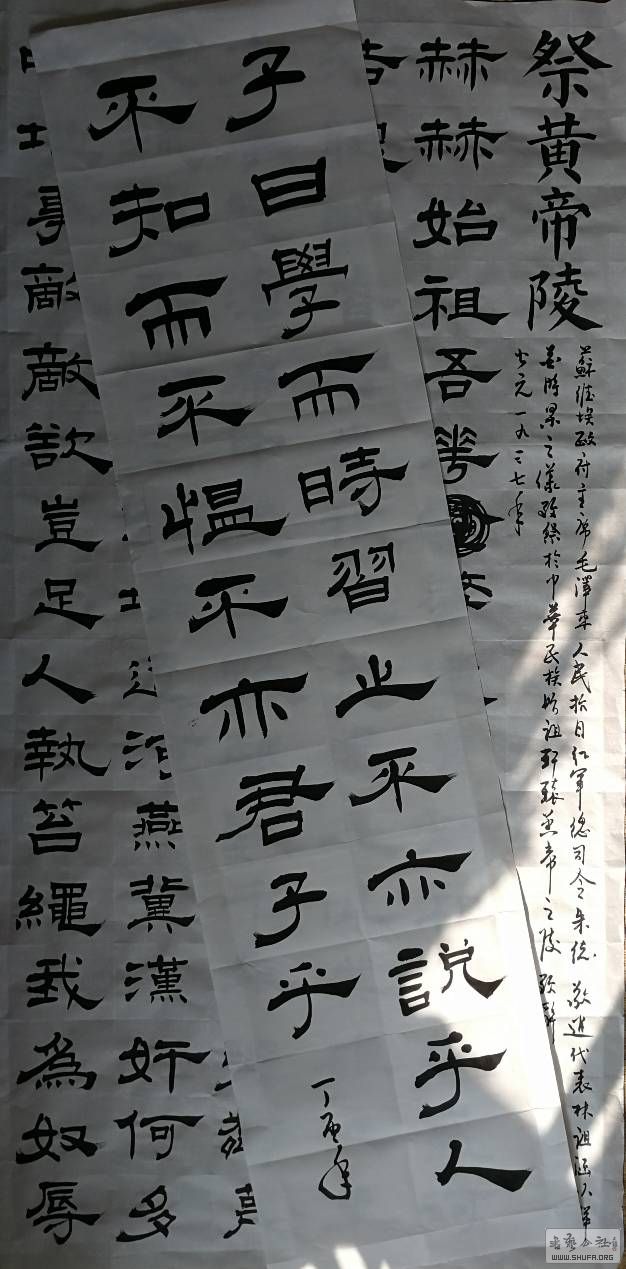 祭黃帝陵
蘇維埃政府主席毛澤東人民抗日紅軍總司令朱德敬遣代表林祖涵以鮮
花時果之儀致祭於中華民族始祖軒轅黃帝之陵致辭
公元一九三七年
赫赫始祖吾華
燕冀漢奸何多
事敵敵欲豈足人執笞繩我為奴辱
子曰學而時習之不亦說乎人
不知而不慍不亦君子乎
丁酉年
書藝公社
WWW.SHUFA.ORG